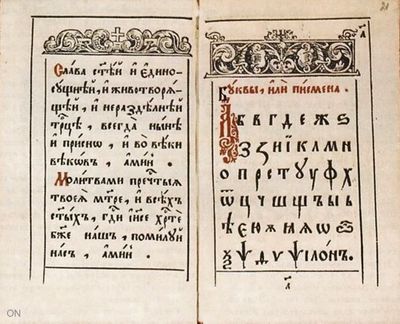 Слава ст҃ѣй и едино-
сущнѣй, и животворѧ-
щей, и нераздѣлнѣй
трⷪ҇цѣ, всегда нынѣ
и приснѡ, и во вѣки
вѣкѡвъ, аминь.
Молитвами прⷱ҇тыѧ
твоеѧ мт҃ре, и всѣхъ
ст҃ыхъ, гдⷭ҇и іи҃се хрⷭ҇те
бж҃е нашъ, помилуй
насъ, аминь.
21
Буквы, или писмена.
А б в г д е ж ѕ
з ꙁ и і к л м н
о п р с т у ф х
ѿ ц ч ш щ ъ ы ь
ѣ ю ѧ ѡ
ѯ ѱ ѵ ѱілонъ.
ON